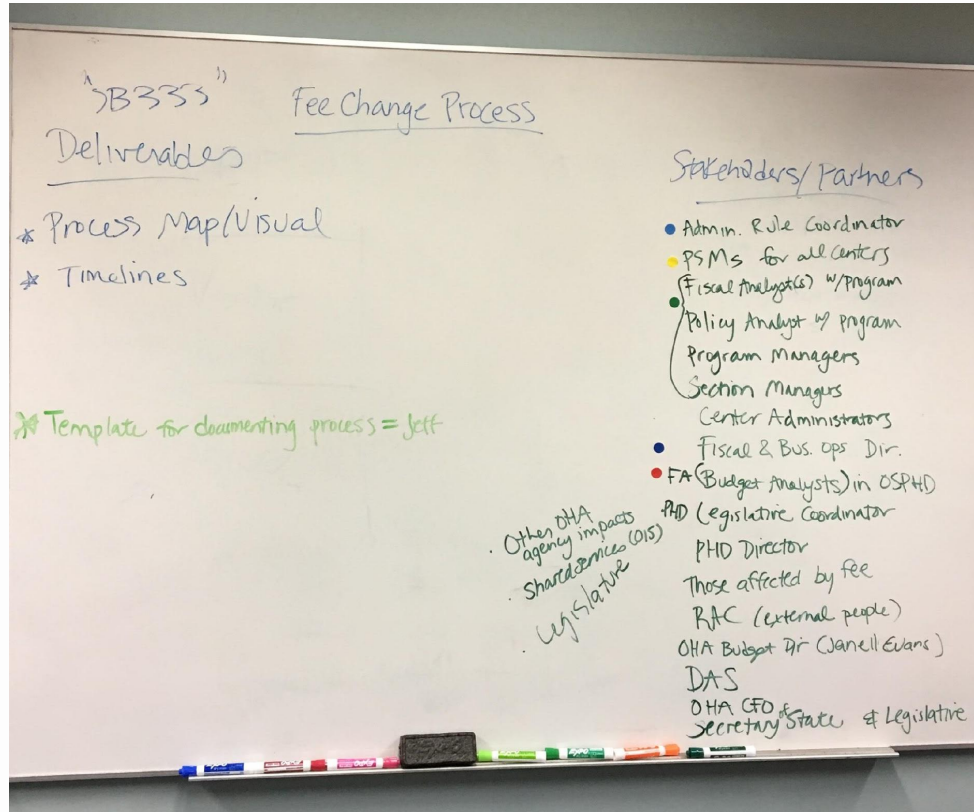 "SB333"
Fee Change Process
Deliverables
* Process Map/Visual
* Timelines
* Template for documenting process = Jeff
Stakeholders/Partners
Admin. Rule Coordinator
PSMs for all centers
Fiscal Analyst(s) w/program
Policy Analyst w/ program
Program Managers
Section Managers
Center Administrators
Fiscal & Bus. Ops Dir.
FA (Budget Analysts) in OSPHD
PHD Legislative Coordinator
PHD Director
Those affected by fee
RAC (external people)
OHA Budget Dir (Janell Evans)
DAS
OHA CFO
Secretary of State & Legislative
· Other OHA
agency impacts
· Shared services (OIS)
· Legislature
EXPO